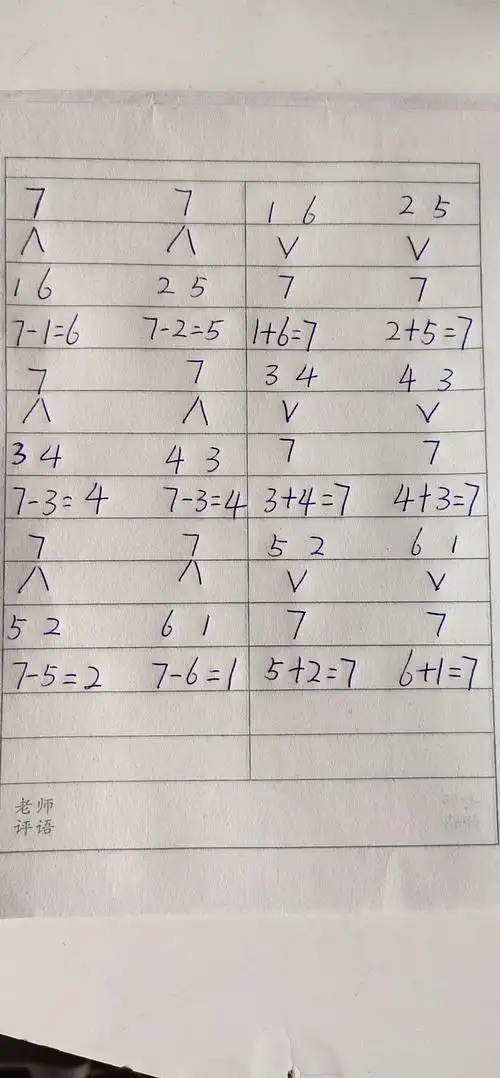 7 7 1 6 2 5
∧ ∧ ∨ ∨
1 6 2 5 7 7
7-1=6 7-2=5 1+6=7 2+5=7
7 7 3 4 4 3
∧ ∧ ∨ ∨
3 4 4 3 7 7
7-3=4 7-3=4 3+4=7 4+3=7
7 7 5 2 6 1
∧ ∧ ∨ ∨
5 2 6 1 7 7
7-5=2 7-6=1 5+2=7 6+1=7
老师
评语